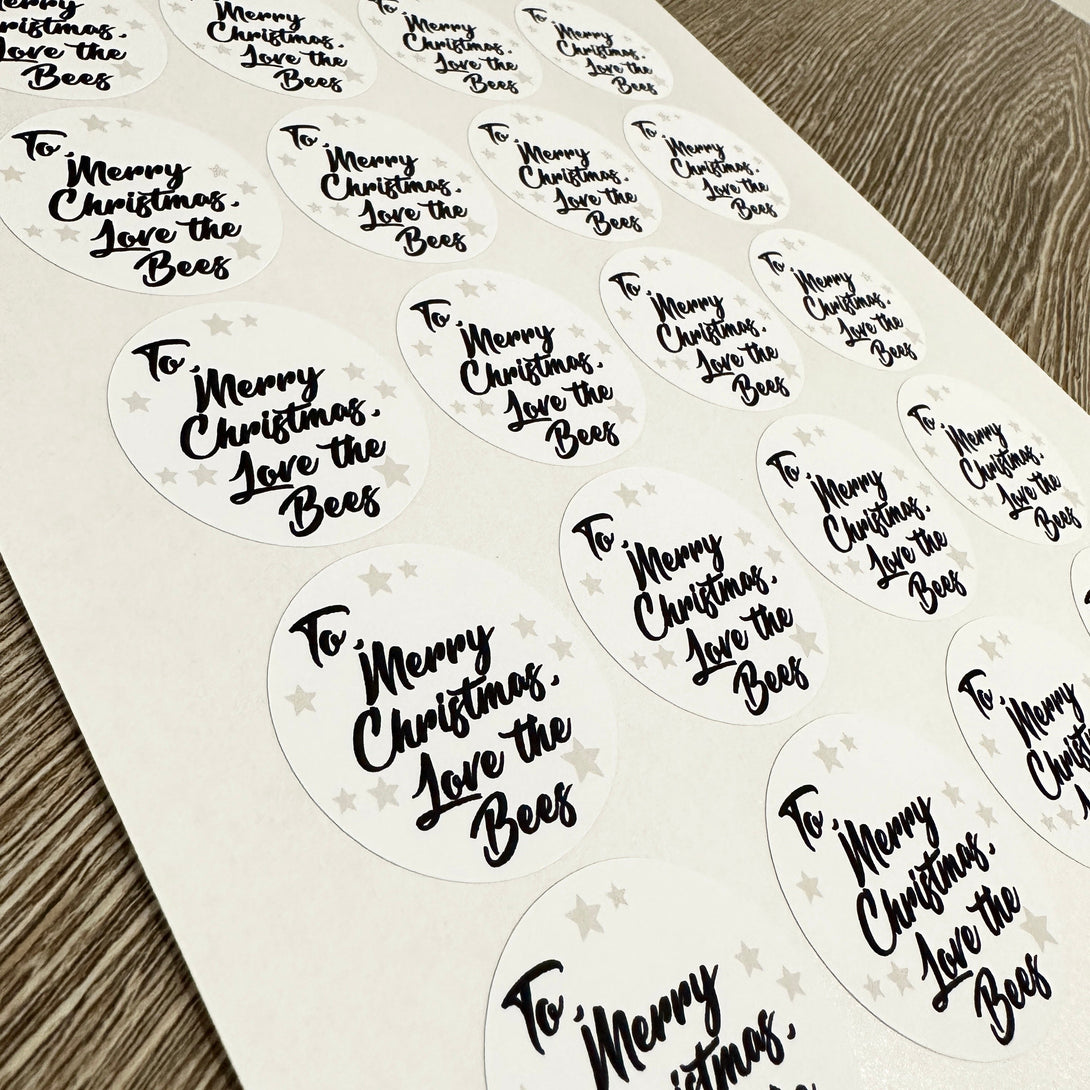 Merry
Christmas,
Love the
Bees
Merry
Christmas,
Love the
Bees
To,
Merry
Christmas,
Love the
Bees
To,
Merry
Christmas,
Love the
Bees
To,
Merry
Christmas,
Love the
Bees
To,
Merry
Christmas,
Love the
Bees
To,
Merry
Christmas,
Love the
Bees
To,
Merry
Christmas,
Love the
Bees
To,
Merry
Christmas,
Love the
Bees
To,
Merry
Christmas,
Love the
Bees
To,
Merry
Christmas,
Love the
Bees
To,
Merry
Christmas,
Love the
Bees
To,
Merry
Christmas,
Love the
Bees
To,
Merry
Christmas,
Love the
Bees
To,
Merry
Christmas,
Love the
Bees
To,
Merry
Christmas,
Love the
Bees
To,
Merry
To,
Merry
Christmas,
Love the
Bees
To,
Merry